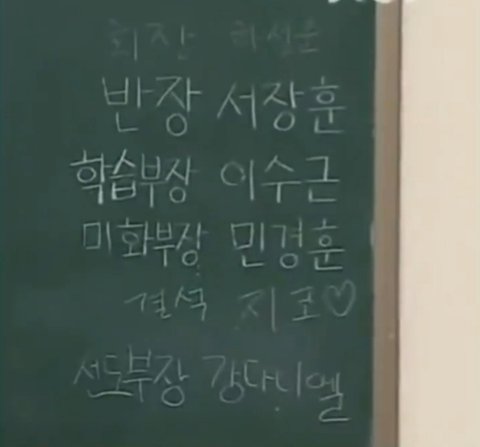 회장
반장 서장훈
학습부장 이수근
미화부장 민경훈
결석 지코♡
선도부장 강다니엘